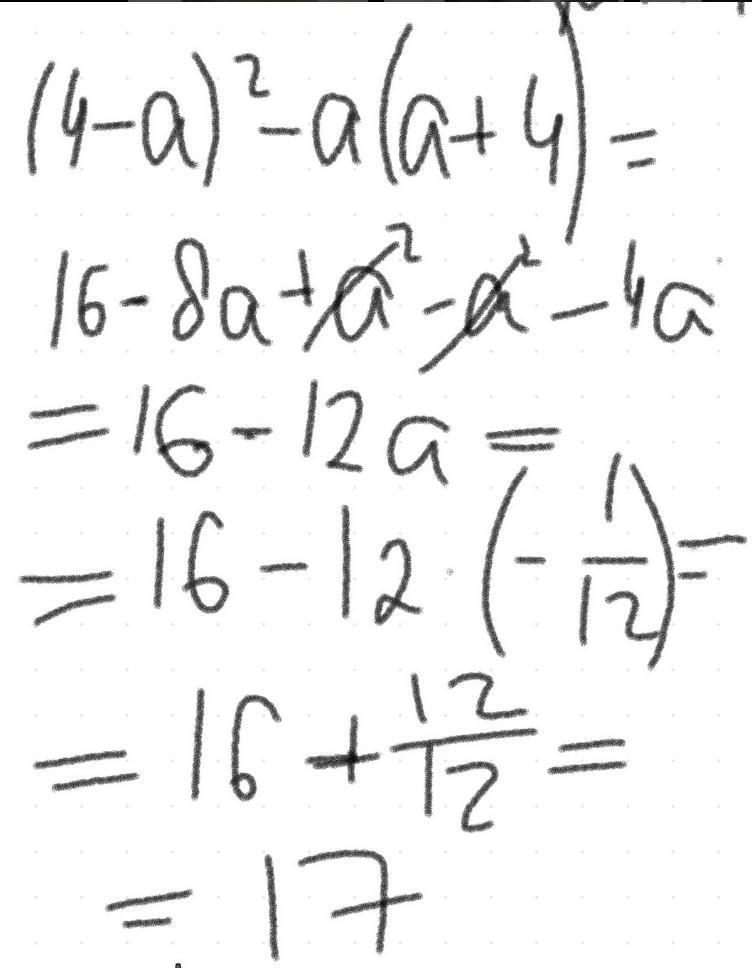 (4-a)² - a(a+4) =
16 - 8a + a² - a² - 4a
= 16 - 12a =
= 16 - 12 · (- 1/12) =
= 16 + 12/12 =
= 17